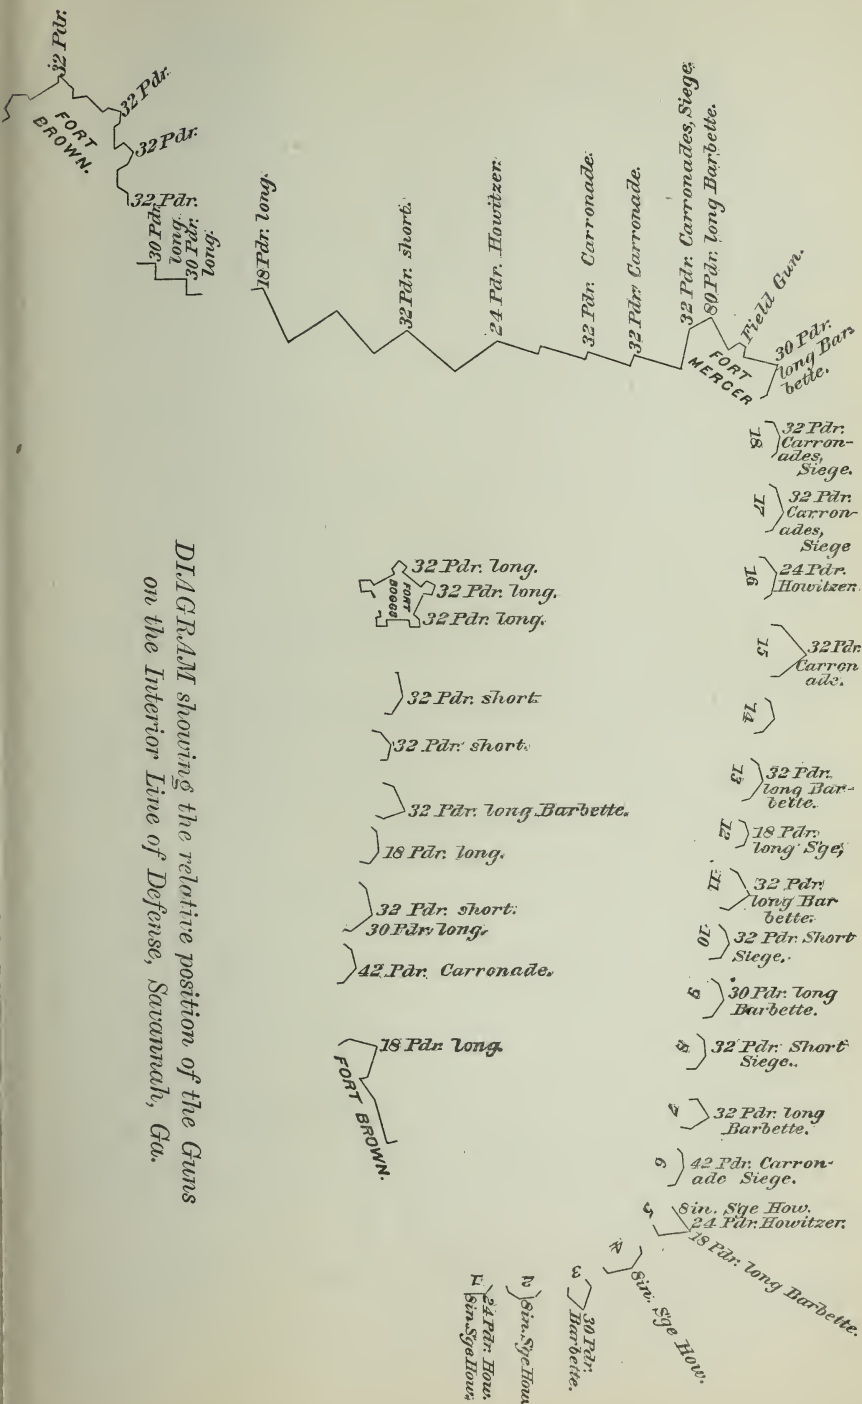 32 Pdr.
FORT
BROWN.
32 Pdr.
32 Pdr.
32 Pdr.
30 Pdr.
long.
30 Pdr.
long.
18 Pdr. long.
32 Pdr. short.
24 Pdr. Howitzer.
32 Pdr. Carronade.
32 Pdr. Carronade.
32 Pdr. Carronades, Siege,
80 Pdr. long Barbette.
Field Gun.
FORT
MERCER
30 Pdr.
long Bar
bette.
18
32 Pdr.
Carron-
ades,
Siege.
17
32 Pdr.
Carron-
ades,
Siege
16
24 Pdr.
Howitzer.
15
32 Pdr.
Carron
ade.
14
13
32 Pdr.
long Bar-
bette.
12
18 Pdr.
long Sge,
11
32 Pdr.
long Bar
bette.
10
32 Pdr. Short
Siege.
9
30 Pdr. long
Barbette.
8
32 Pdr. Short
Siege.
7
32 Pdr. long
Barbette.
6
42 Pdr. Carron-
ade Siege.
5
8in. Sge How.
24 Pdr. Howitzer.
18 Pdr. long Barbette.
4
8in. Sge How.
3
30 Pdr.
Barbette.
2
8in. Sge How.
1
24 Pdr. How.
8in. Sge How.
32 Pdr. long.
32 Pdr. long.
32 Pdr. long.
FORT
BOGGS
32 Pdr. short.
32 Pdr. short.
32 Pdr. long Barbette.
18 Pdr. long.
32 Pdr. short.
30 Pdr. long.
42 Pdr. Carronade.
18 Pdr. long.
FORT BROWN.
DIAGRAM showing the relative position of the Guns
on the Interior Line of Defense, Savannah, Ga.